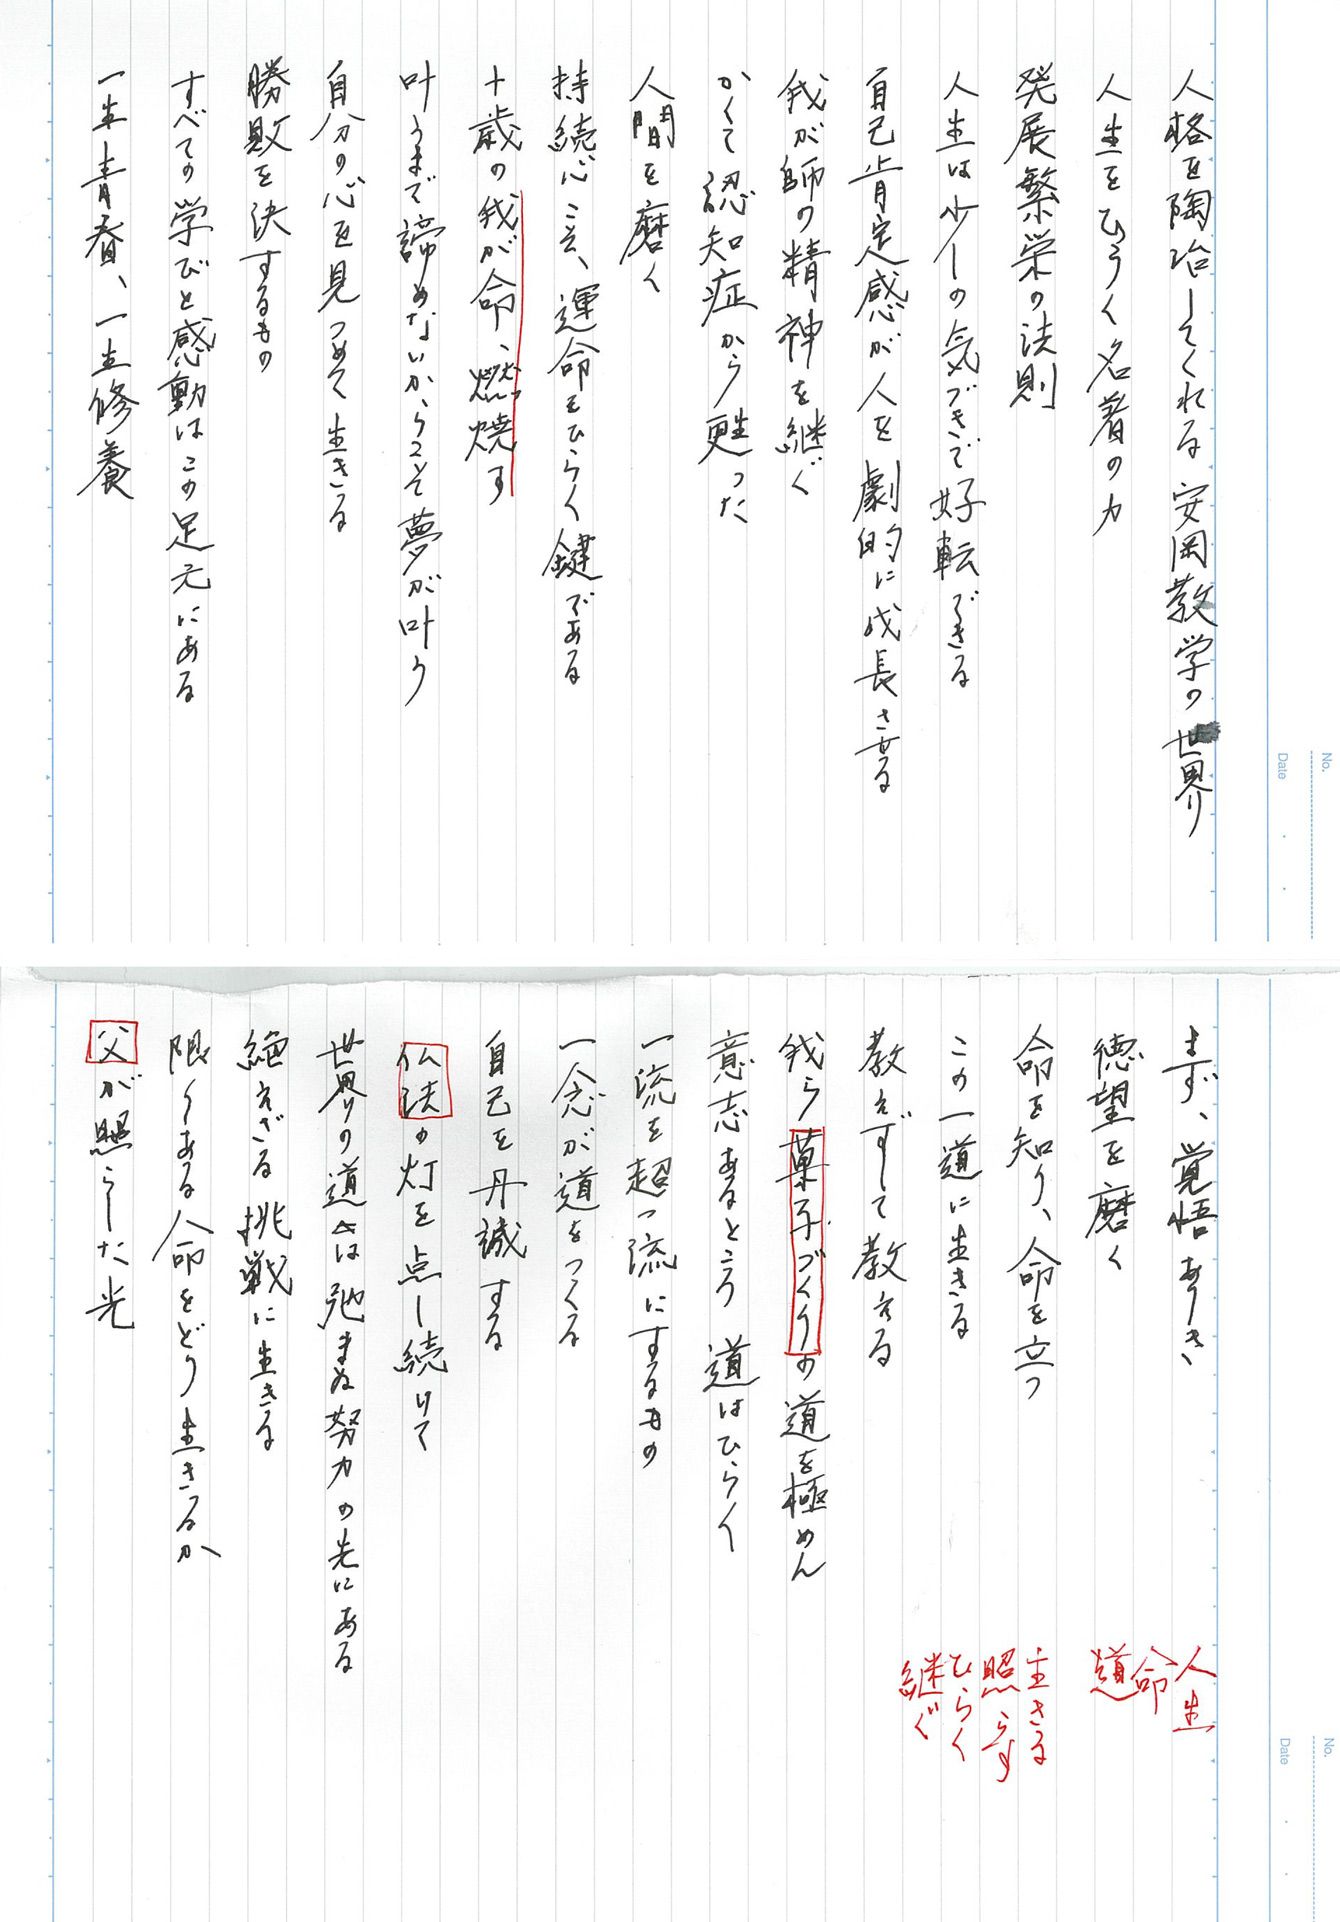 No.
Date
人格を陶冶してくれる安岡教学の世界
人生をひらく名著の力
発展繁栄の法則
人生は少しの気づきで好転できる
自己肯定感が人を劇的に成長させる
我が師の精神を継ぐ
かくて認知症から甦った
人間を磨く
持続心こそ、運命をひらく鍵である
十歳の我が命、燃焼す
叶うまで諦めないからこそ夢が叶う
自分の心を見つめて生きる
勝敗を決するもの
すべての学びと感動はこの足元にある
一生青春、一生修養
No.
Date
まず、覚悟ありき
徳望を磨く
命を知り、命を立つ
この一道に生きる
教えずして教える
我ら菓子づくりの道を極めん
意志あるところ道はひらく
一流を超一流にするもの
一念が道をつくる
自己を丹誠する
仏法の灯を点し続けて
世界の道は弛まぬ努力の先にある
絶えざる挑戦に生きる
限りある命をどう生きるか
父が照らした光
人生
命
道
生きる
照らす
ひらく
継ぐ